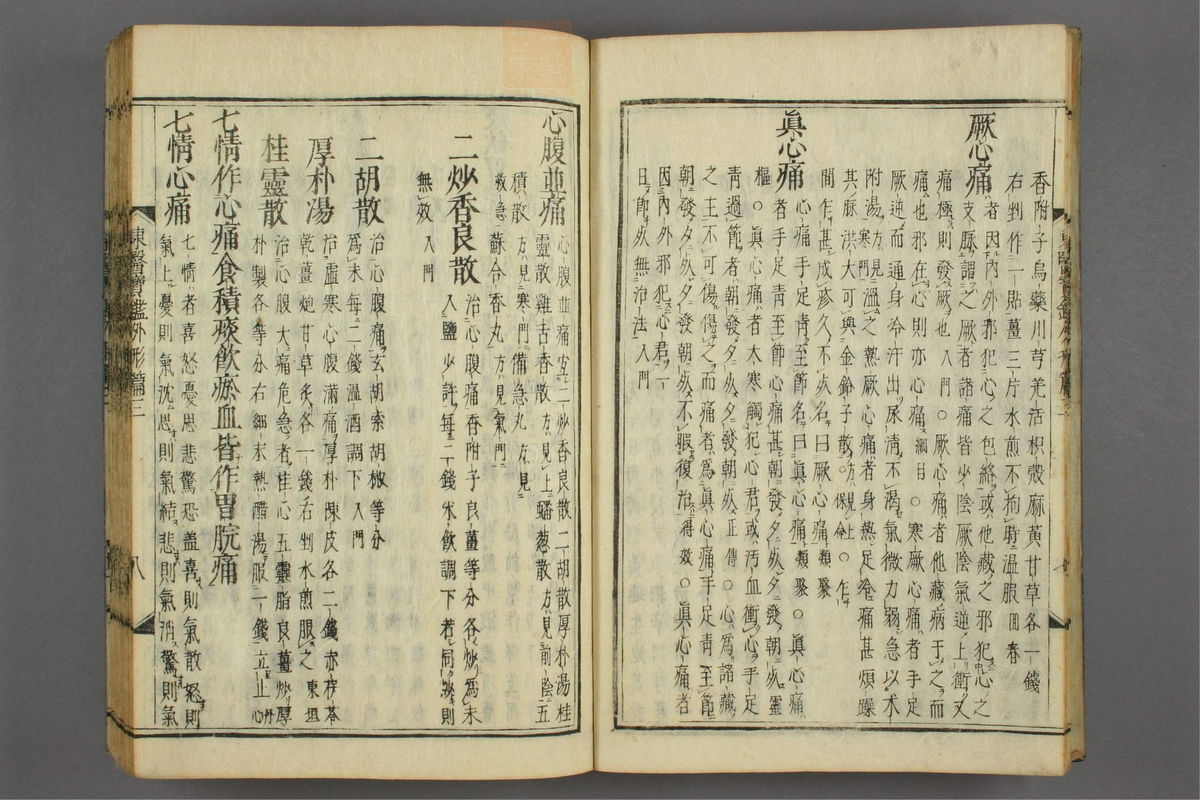 香附子烏藥川芎羌活枳殼麻黃甘草各一錢
右剉作一貼薑三片水煎不拘時溫服回春
厥心痛 者因內外邪犯心之包絡或他藏之邪犯心之
支脈謂之厥者諸痛皆少陰厥陰氣逆上衝又
痛極則發厥也入門○厥心痛者他藏病干之而
痛也邪在心則亦心痛綱目○寒厥心痛者手足
厥逆而通身冷汗出尿淸不渴氣微力弱急以朮
附湯方見寒門溫之熱厥心痛者身熱足冷痛甚煩躁
其脉洪大可與金鈴子散方見上保命○乍
間乍甚成疹久不死名曰厥心痛類聚
眞心痛 心痛手足靑至節名曰眞心痛類聚○眞心痛
者手足靑至節心痛甚朝發夕死夕發朝死靈
樞○眞心痛者大寒觸犯心君或汚血衝心手足
靑過節者朝發夕死夕發朝死正傳○心爲諸藏
之主不可傷傷之而痛者爲眞心痛手足靑至節
朝發夕死夕發朝死不暇復治得效○眞心痛者
因內外邪犯心君一
日卽死無治法入門
心腹並痛 心腹並痛宜二炒香良散二胡散厚朴湯桂
靈散雞舌香散方見上蟠葱散方見前陰五
積散方見寒門備急丸方見
救急蘇合香丸方見氣門
二炒香良散 治心腹痛香附子良薑等分各炒爲末
入鹽少許每二錢米飮調下若同炒則
無效入門
二胡散 治心腹痛玄胡索胡椒等分
爲末每二錢溫酒調下入門
厚朴湯 治虛寒心腹滿痛厚朴陳皮各二錢赤茯苓
乾薑炮甘草炙各一錢右剉水煎服之東垣
桂靈散 治心腹大痛危急者桂心五靈脂良薑炒厚
朴製各等分右細末熱醋湯服一錢立止丹心
七情作心痛食積痰飮瘀血皆作胃脘痛
七情心痛 七情者喜怒憂思悲驚恐盖喜則氣散怒則
氣上憂則氣沈思則氣結悲則氣消驚則氣
東醫寶鑑外形篇三
八